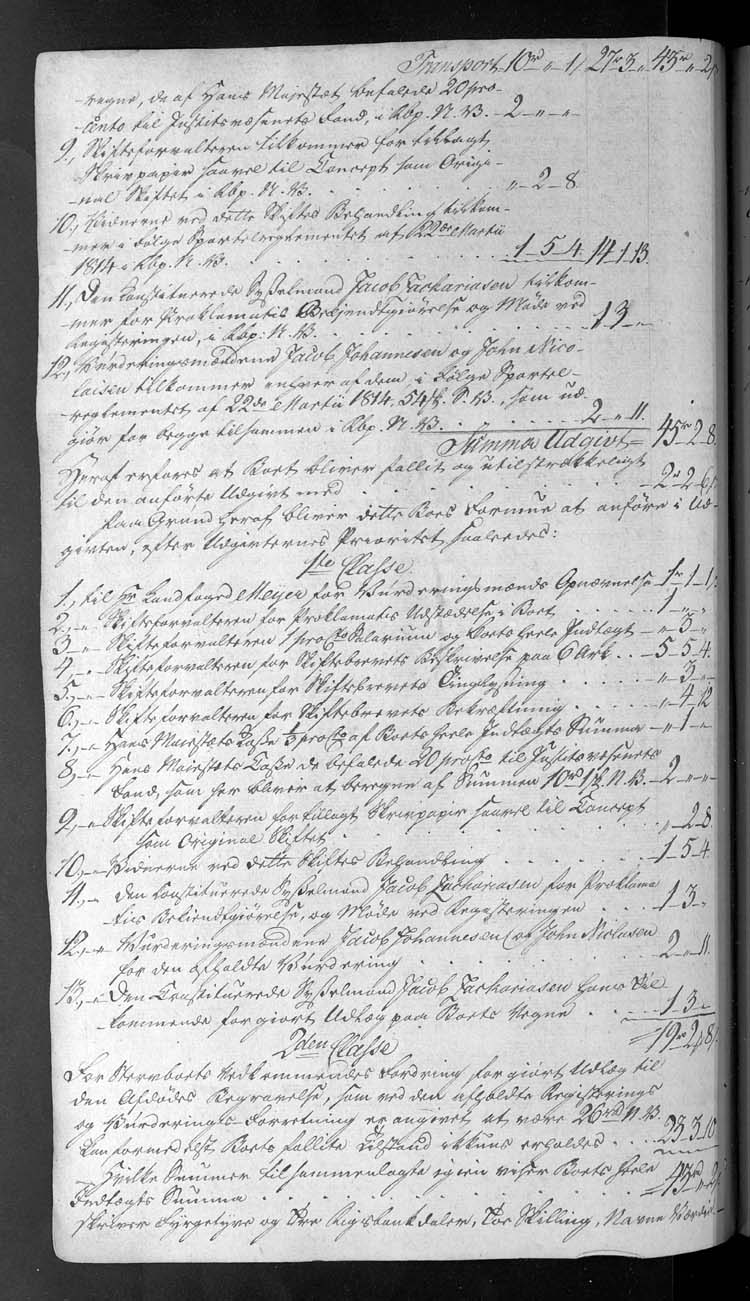 Transport 10rd " 1/ 27 " 3 " 43rd " 2/
-vegne, de af Hans Majestæt befalede 20 pro-
-cento til Justitsvæsenets Fond, i Rbp. N. V. - 2 - " - "
9., Skifteforvalteren tilkommer for tillagt
Skrivpapir saavel til Concept som Origi-
-nal Skiftet i Rbp. N. V. " - 2 - 8
10., Vidnerne ved dette Skiftes Behandling tilkom-
mer i følge Sportelreglementet af 22de Martii
1814 i Rbp. N. V. 1 - 5 - 4. 14 - 1 - 13.
11., Den Constituerede Sysselmand Jacob Zachariasen tilkom-
mer for Proklamatis Bekjendtgiørelse og Møde ved
Registeringen, i Rbp: N. V. 1 3 - "
12., Vurderingsmændene Jacob Johannesen og John Nico-
laisen tilkommer enhver af dem, i Følge Sportel-
reglementet af 22de Martii 1814, 54 S. V., som ud-
giør for begge tilsammen i Rbp. N. V. 2 - " - 11.
Summa Udgivt = 45rd 2 - 8
Heraf erfares at Boet bliver fallit og utilstrækkeligt
til den anførte Udgivt med 2 - 2 - 6/.
Paa Grund heraf bliver dette Boes Formue at anføre i Ud-
givten, efter Udgivternes Prioritet saaledes:
1ste Classe
1., til Hr Landfoged Meyer for Vurderingsmænds Opnævnelse 1rd 1 - 1/.
2., - " Skifteforvalteren for Proklamatis Udstædelse i Boet 1 - " - "
3 - " Skifteforvalteren 1 procto Salarium og Boets heele Indtægt - " - 3 - "
4 - " Skifteforvalteren for Skiftebrevets Beskrivelse paa 6 Ark 5 - 5 - 4.
5., - " Skifteforvalteren for Skiftebrevets Tinglysning " - 3 - "
6., - " Skifteforvalteren for Skiftebrevets Bekræftning " - 4 - 12
7., - " Hans Maiestæts Casse 1/3 procto af Boets heele Indtægts Summa - " - 1 - "
8, - " Hans Maiestæts Casse de befalede 20 procto til Justitsvæsenets
Fond, som her bliver at beregne af Summen 10rd 1 N. V. - 2 - " - "
9., - " Skifteforvalteren for tillagt Skrivpapir saavel til Concept
som Original Skiftet " - 2 - 8
10., - " Vidnerne ved dette Skiftes Behandling 1 - 5 - 4
11., - " den Constituerede Sysselmand Jacob Zachariasen for Proklama-
tis Bekiendtgiørelse, og Møde ved Registeringen 1 3 - "
12., - " Vurderingsmændene Jacob Johannesen og John Niclasen
for den afholdte Vurdering 2 - " - 11.
13., - " Den Constituerede Sysselmand Jacob Zachariasen hans Til-
kommende for giort Udlæg paa Boets Vegne 1 3 - "
19rd 2 - 8/.
2den Classe
For Stervboets Vedkommendes Fordring for giort Udlæg til
den Afdødes Begravelse, som ved den afholdte Registerings
og Vurderings Forretning er angivet at være 26rd N. V.
kan formedelst Boets fallite Tilstand ikkuns erholdes 23 3 10
Hvilke Summer tilsammenlagte igien viser Boets heele
Indtægts Summa 43rd " 2/
skriver Fyrgetyve og Tre Rigsbankdaler, Toe Skilling, Navne Værdie.